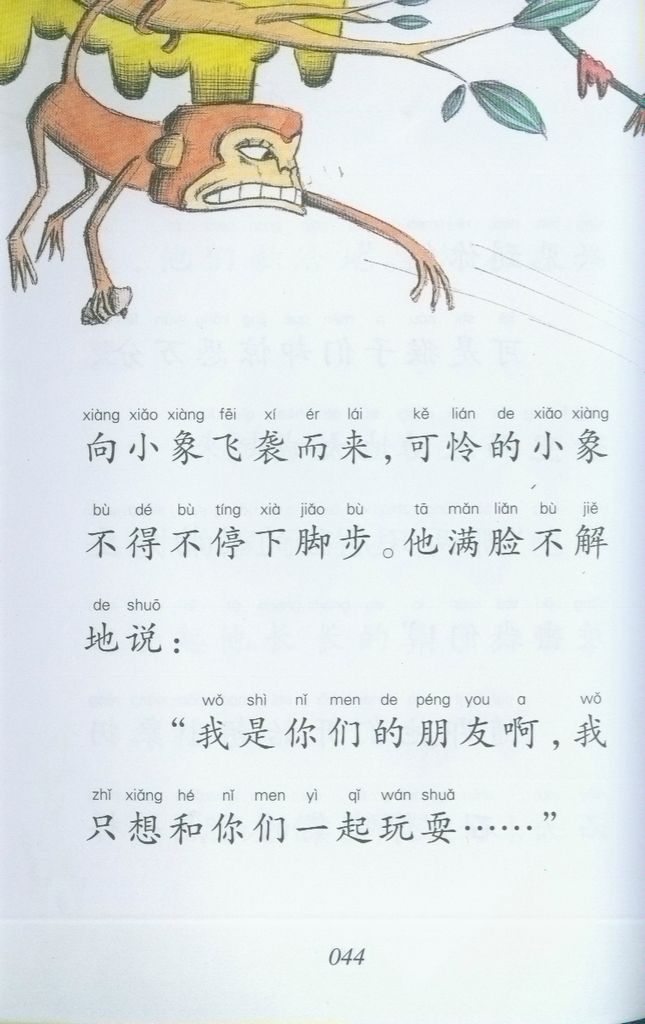 xiàng xiǎo xiàng fēi xí ér lái kě lián de xiǎo xiàng
向小象飞袭而来，可怜的小象
bù dé bù tíng xià jiǎo bù tā mǎn liǎn bù jiě
不得不停下脚步。他满脸不解
de shuō
地说：
wǒ shì nǐ men de péng you ɑ wǒ
“我是你们的朋友啊，我
zhǐ xiǎng hé nǐ men yì qǐ wán shuǎ
只想和你们一起玩耍……”
044